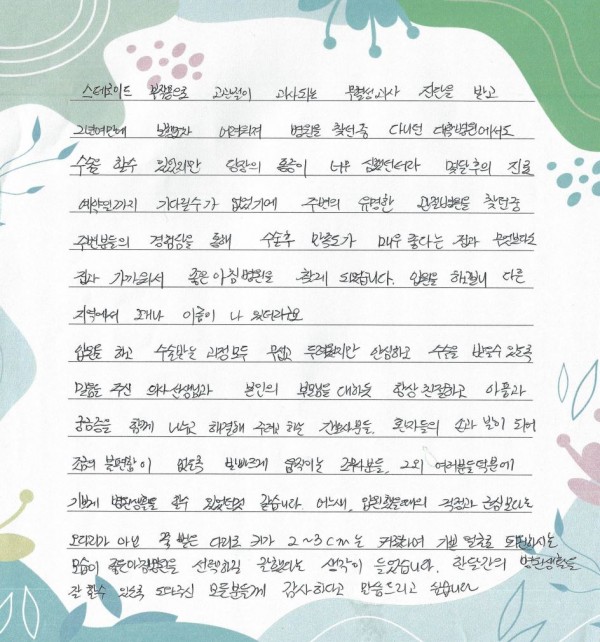 스테로이드 부작용으로 고관절이 괴사되는 무혈성괴사 진단을 받고
2년여만에 보행마저 어려워져 병원을 찾던중 다니던 대학병원에서도
수술을 할수 있었지만 당장의 통증이 너무 심했던터라 몇달후의 진료
예약일까지 기다릴수가 없었기에 주변의 유명한 관절병원을 찾던중
주변분들의 경험담을 통해 수술후 만족도가 매우 좋다는 점과 무엇보다도
집과 가까워서 좋은아침병원을 찾게 되었습니다. 입원을 하고보니 다른
지역에서도 꽤나 이름이 나 있더라구요
입원을 하고 수술받는 과정 모두 무섭고 두려웠지만 안심하고 수술을 받을수 있도록
말씀을 주신 의사선생님과 본인의 부모님을 대하듯 항상 친절하고 아픔과
궁금증을 함께 나누고 해결해 주려고 하는 간호사분들, 환자들의 손과 발이 되어
조금의 불편함이 없도록 발빠르게 움직이는 조무사분들, 그외 여러분들 덕분에
기쁘게 병원생활을 할수 있었던것 같습니다. 어느새, 입원했을때의 걱정과 근심보다는
오다리가 아닌 쭉 뻗은 다리로 키가 2~3cm는 커져서 기쁜 얼굴로 퇴원하시는
모습이 좋은아침병원을 선택하길 잘했다는 생각이 들었습니다. 한달간의 병원생활을
잘 할수 있도록 도와주신 모든분들께 감사하다고 말씀드리고 싶습니다